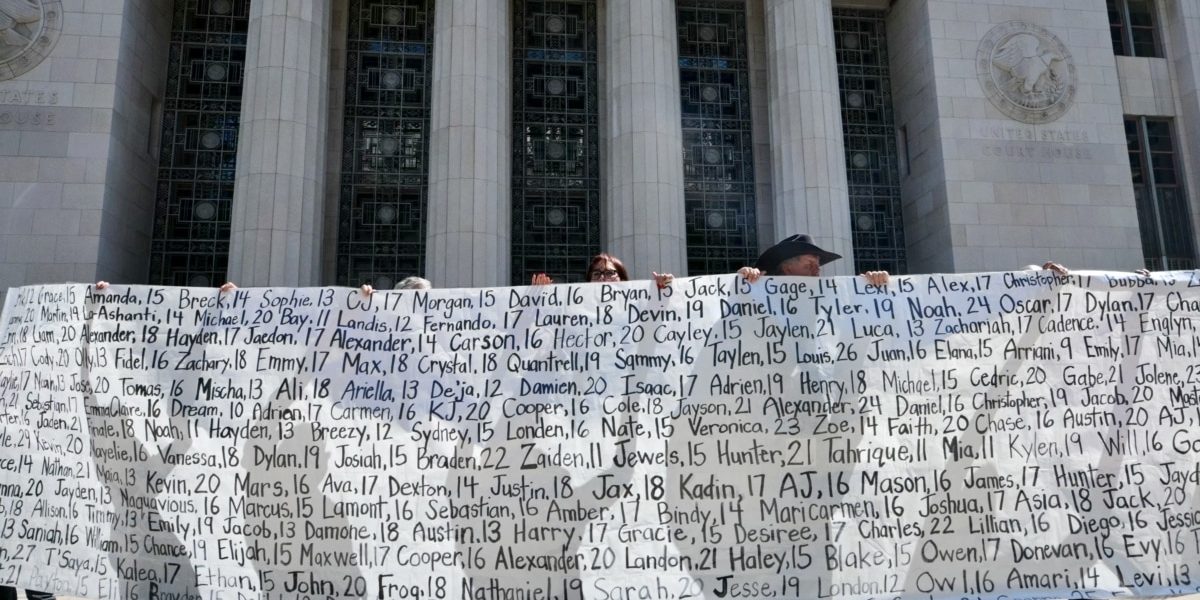 STATES
HOUSE
UNITED STATES
COURT HOUSE
12 Grace,15 Amanda, 15 Breck, 14 Sophie, 13 CJ, 17 Morgan, 15 David, 16 Bryan, 15 Jack, 15 Gage, 14 Lexi, 15 Alex, 17 Christopher, 17 Bubba,
20 Martin, 19 La-Ashanti, 14 Michael, 20 Bay, 11 Landis, 12 Fernando, 17 Lauren, 18 Devin, 19 Daniel, 16 Tyler, 19 Noah, 24 Oscar, 17 Dylan, 17
18 Liam, 20 Alexander, 18 Hayden, 17 Jaedon, 17 Alexander, 14 Carson, 16 Hector, 20 Cayley, 15 Jaylen, 21 Luca, 13 Zachariah, 17 Cadence, 14 Englyn,
Zach, 17 Cody, 20 Olly, 13 Fidel, 16 Zachary, 18 Emmy, 17 Max, 18 Crystal, 18 Quantrell, 19 Sammy, 16 Taylen, 15 Louis, 26 Juan, 16 Elana, 15 Arriani, 9 Emily, 17 Mia, 14
17 Noah, 13 Jose, 20 Tomas, 16 Mischa, 13 Ali, 18 Ariella, 13 Deja, 12 Damien, 20 Isaac, 17 Adrien, 19 Henry, 18 Michael, 15 Cedric, 20 Gabe, 21 Jolene, 23
21 Sebastian, 17 EmmaClaire, 16 Dream, 10 Adrien, 17 Carmen, 16 KJ, 20 Cooper, 16 Cole, 18 Jayson, 21 Alexander, 24 Daniel, 16 Christopher, 19 Jacob, 20
16 Jaden, 21 18 Noah, 11 Hayden, 13 Breezy, 12 Sydney, 15 Londen, 16 Nate, 15 Veronica, 23 Zoe, 14 Faith, 20 Chase, 16 Austin, 20 AJ
24 Kevin, 20 Nayelie, 16 Vanessa, 18 Dylan, 19 Josiah, 15 Braden, 22 Zaiden, 11 Jewels, 15 Hunter, 21 Tahrique, 11 Mia, 11 Kylen, 19 Will, 16
14 Nathan, 21 Maia, 13 Kevin, 20 Mars, 16 Ava, 17 Dexton, 14 Justin, 18 Jax, 18 Kadin, 17 AJ, 16 Mason, 16 James, 17 Hunter, 15
20 Jayden, 13 Naquavious, 16 Marcus, 15 Lamont, 16 Sebastian, 16 Amber, 17 Bindy, 14 Maricarmen, 16 Joshua, 17 Asia, 18 Jack, 20
18 Allison, 16 Timmy, 13 Emily, 19 Jacob, 13 Damone, 18 Austin, 13 Harry, 17 Gracie, 15 Desiree, 17 Charles, 22 Lillian, 16 Diego, 16
13 Saniah, 16 William, 15 Chance, 19 Elijah, 15 Maxwell, 17 Cooper, 16 Alexander, 20 Landon, 21 Haley, 15 Blake, 15 Owen, 17 Donevan, 16 Evy, 16
27 T'Saya, 15 Kalea, 17 Ethan, 15 John, 20 Frog, 18 Nathaniel, 19 Sarah, 20 Jesse, 19 London, 12 Owl, 16 Amari, 14 Levi, 13
21 Payton, 15 Eli, 16 Brayden,